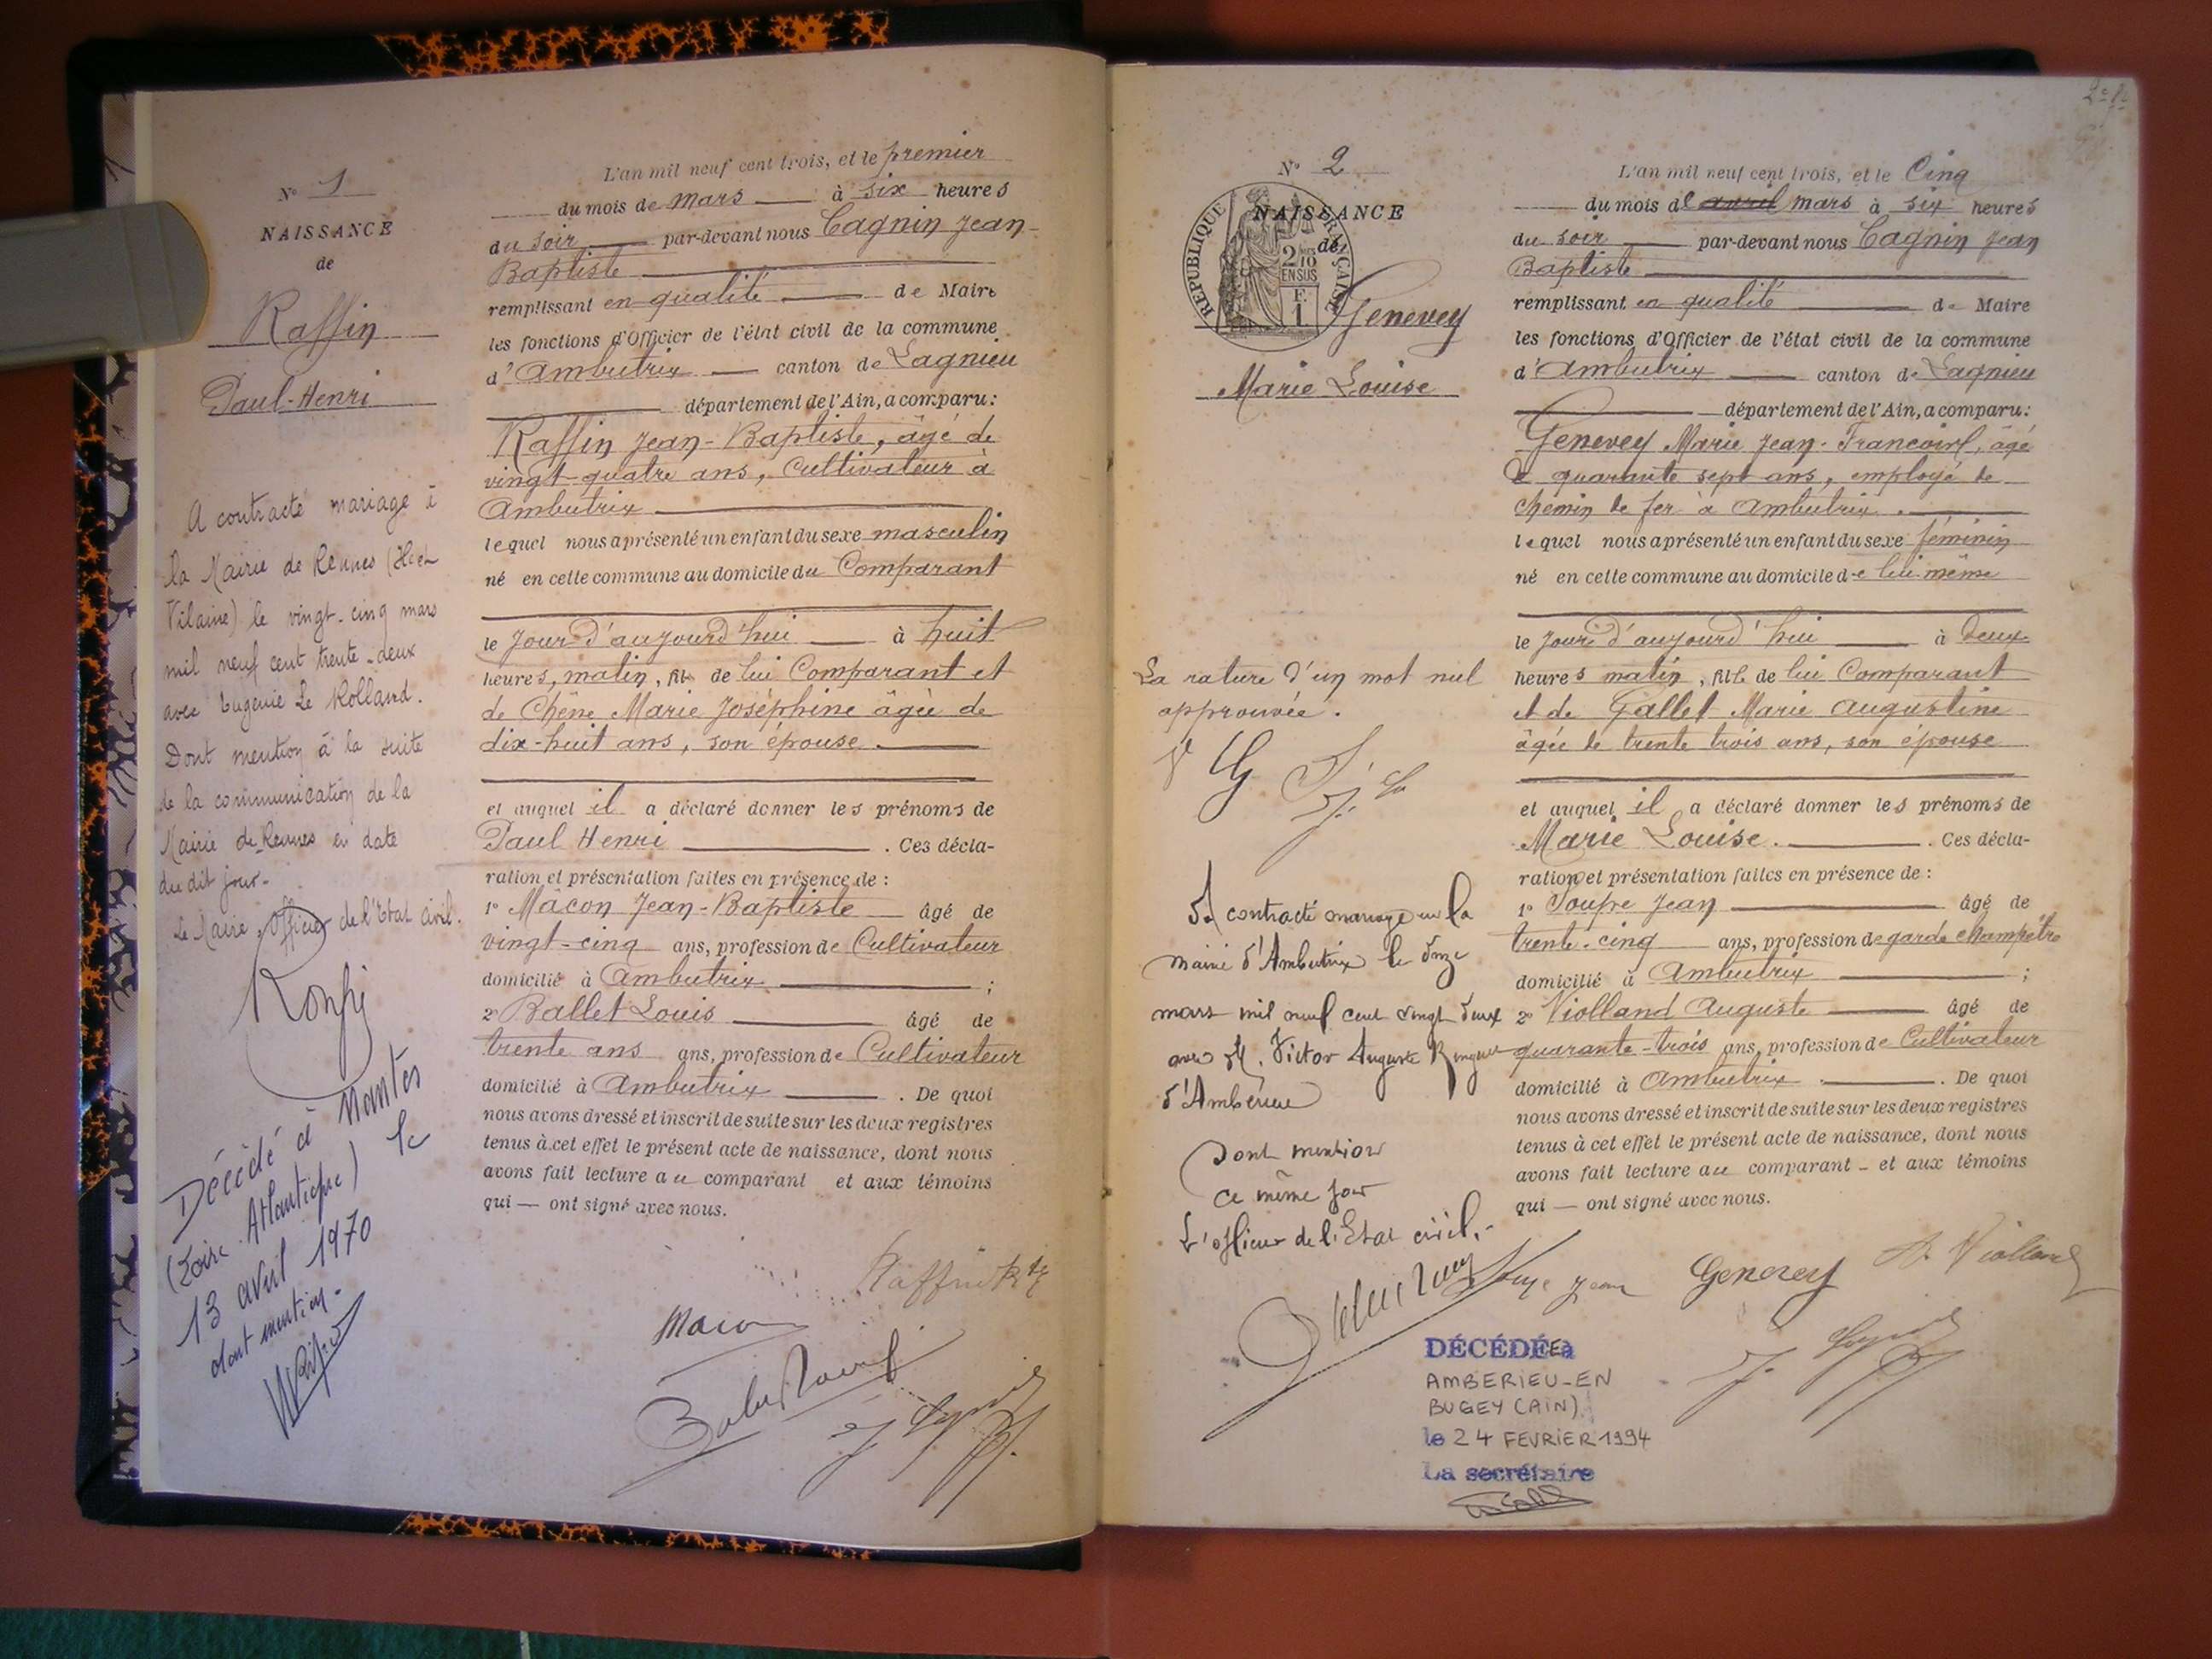 N° 1
NAISSANCE
de
Raffin
Paul-Henri
A contracté mariage à
la Mairie de Rennes (Ille et
Vilaine) le vingt-cinq mars
mil neuf cent trente-deux
avec Eugénie Le Rolland.
Dont mention à la suite
de la communication de la
Mairie de Rennes en date
du dit jour.
Le Maire, Officier de l'Etat Civil.
Décédé à Nantes
(Loire Atlantique) le
13 avril 1970
dont mention.
L'an mil neuf cent trois, et le premier
du mois de mars à six heures
du soir par-devant nous Cagnin Jean-
Baptiste
remplissant en qualité de Maire
les fonctions d'Officier de l'état civil de la commune
d'Ambutrix canton de Lagnieu
département de l'Ain, a comparu:
Raffin Jean-Baptiste, âgé de
vingt-quatre ans, Cultivateur à
Ambutrix
lequel nous a présenté un enfant du sexe masculin
né en cette commune au domicile du Comparant
le jour d'aujourd'hui à huit
heures, matin, fils de lui Comparant et
de Chêne Marie Joséphine âgée de
dix-huit ans, son épouse.
et auquel il a déclaré donner les prénoms de
Paul Henri . Ces décla-
ration et présentation faites en présence de :
1° Mâcon Jean-Baptiste âgé de
vingt-cinq ans, profession de Cultivateur
domicilié à Ambutrix ;
2° Ballet Louis âgé de
trente ans ans, profession de Cultivateur
domicilié à Ambutrix . De quoi
nous avons dressé et inscrit de suite sur les deux registres
tenus à cet effet le présent acte de naissance, dont nous
avons fait lecture au comparant et aux témoins
qui — ont signé avec nous.
Raffin
Macon
N° 2
NAISSANCE
de
RÉPUBLIQUE FRANÇAISE
2/10
EN SUS
F.
1
Genevey
Marie Louise
La rature d'un mot nul
approuvée.
A contracté mariage en la
mairie d'Ambutrix le onze
mars mil neuf cent vingt deux
avec M. Victor Auguste
d'Ambérieu
Dont mention
ce même jour
L'officier de l'Etat civil,
L'an mil neuf cent trois, et le Cinq
du mois de avril mars à six heures
du soir par-devant nous Cagnin Jean
Baptiste
remplissant en qualité de Maire
les fonctions d'Officier de l'état civil de la commune
d'Ambutrix canton de Lagnieu
département de l'Ain, a comparu:
Genevey Marie Jean-, âgé
de quarante sept ans, employé de
chemin de fer à Ambutrix.
lequel nous a présenté un enfant du sexe féminin
né en cette commune au domicile de lui-même
le jour d'aujourd'hui à deux
heures matin, fille de lui Comparant
et de Gallet Marie Augustine
âgée de trente trois ans, son épouse
et auquel il a déclaré donner les prénoms de
Marie Louise. . Ces décla-
ration et présentation faites en présence de :
1° Jean âgé de
trente-cinq ans, profession de garde champêtre
domicilié à Ambutrix ;
2° Violland Auguste âgé de
quarante-trois ans, profession de Cultivateur
domicilié à Ambutrix . De quoi
nous avons dressé et inscrit de suite sur les deux registres
tenus à cet effet le présent acte de naissance, dont nous
avons fait lecture au comparant - et aux témoins
qui — ont signé avec nous.
Jean Genevey A. Violland
DÉCÉDÉE à
AMBERIEU-EN
BUGEY (AIN)
le 24 FEVRIER 1994
La secrétaire